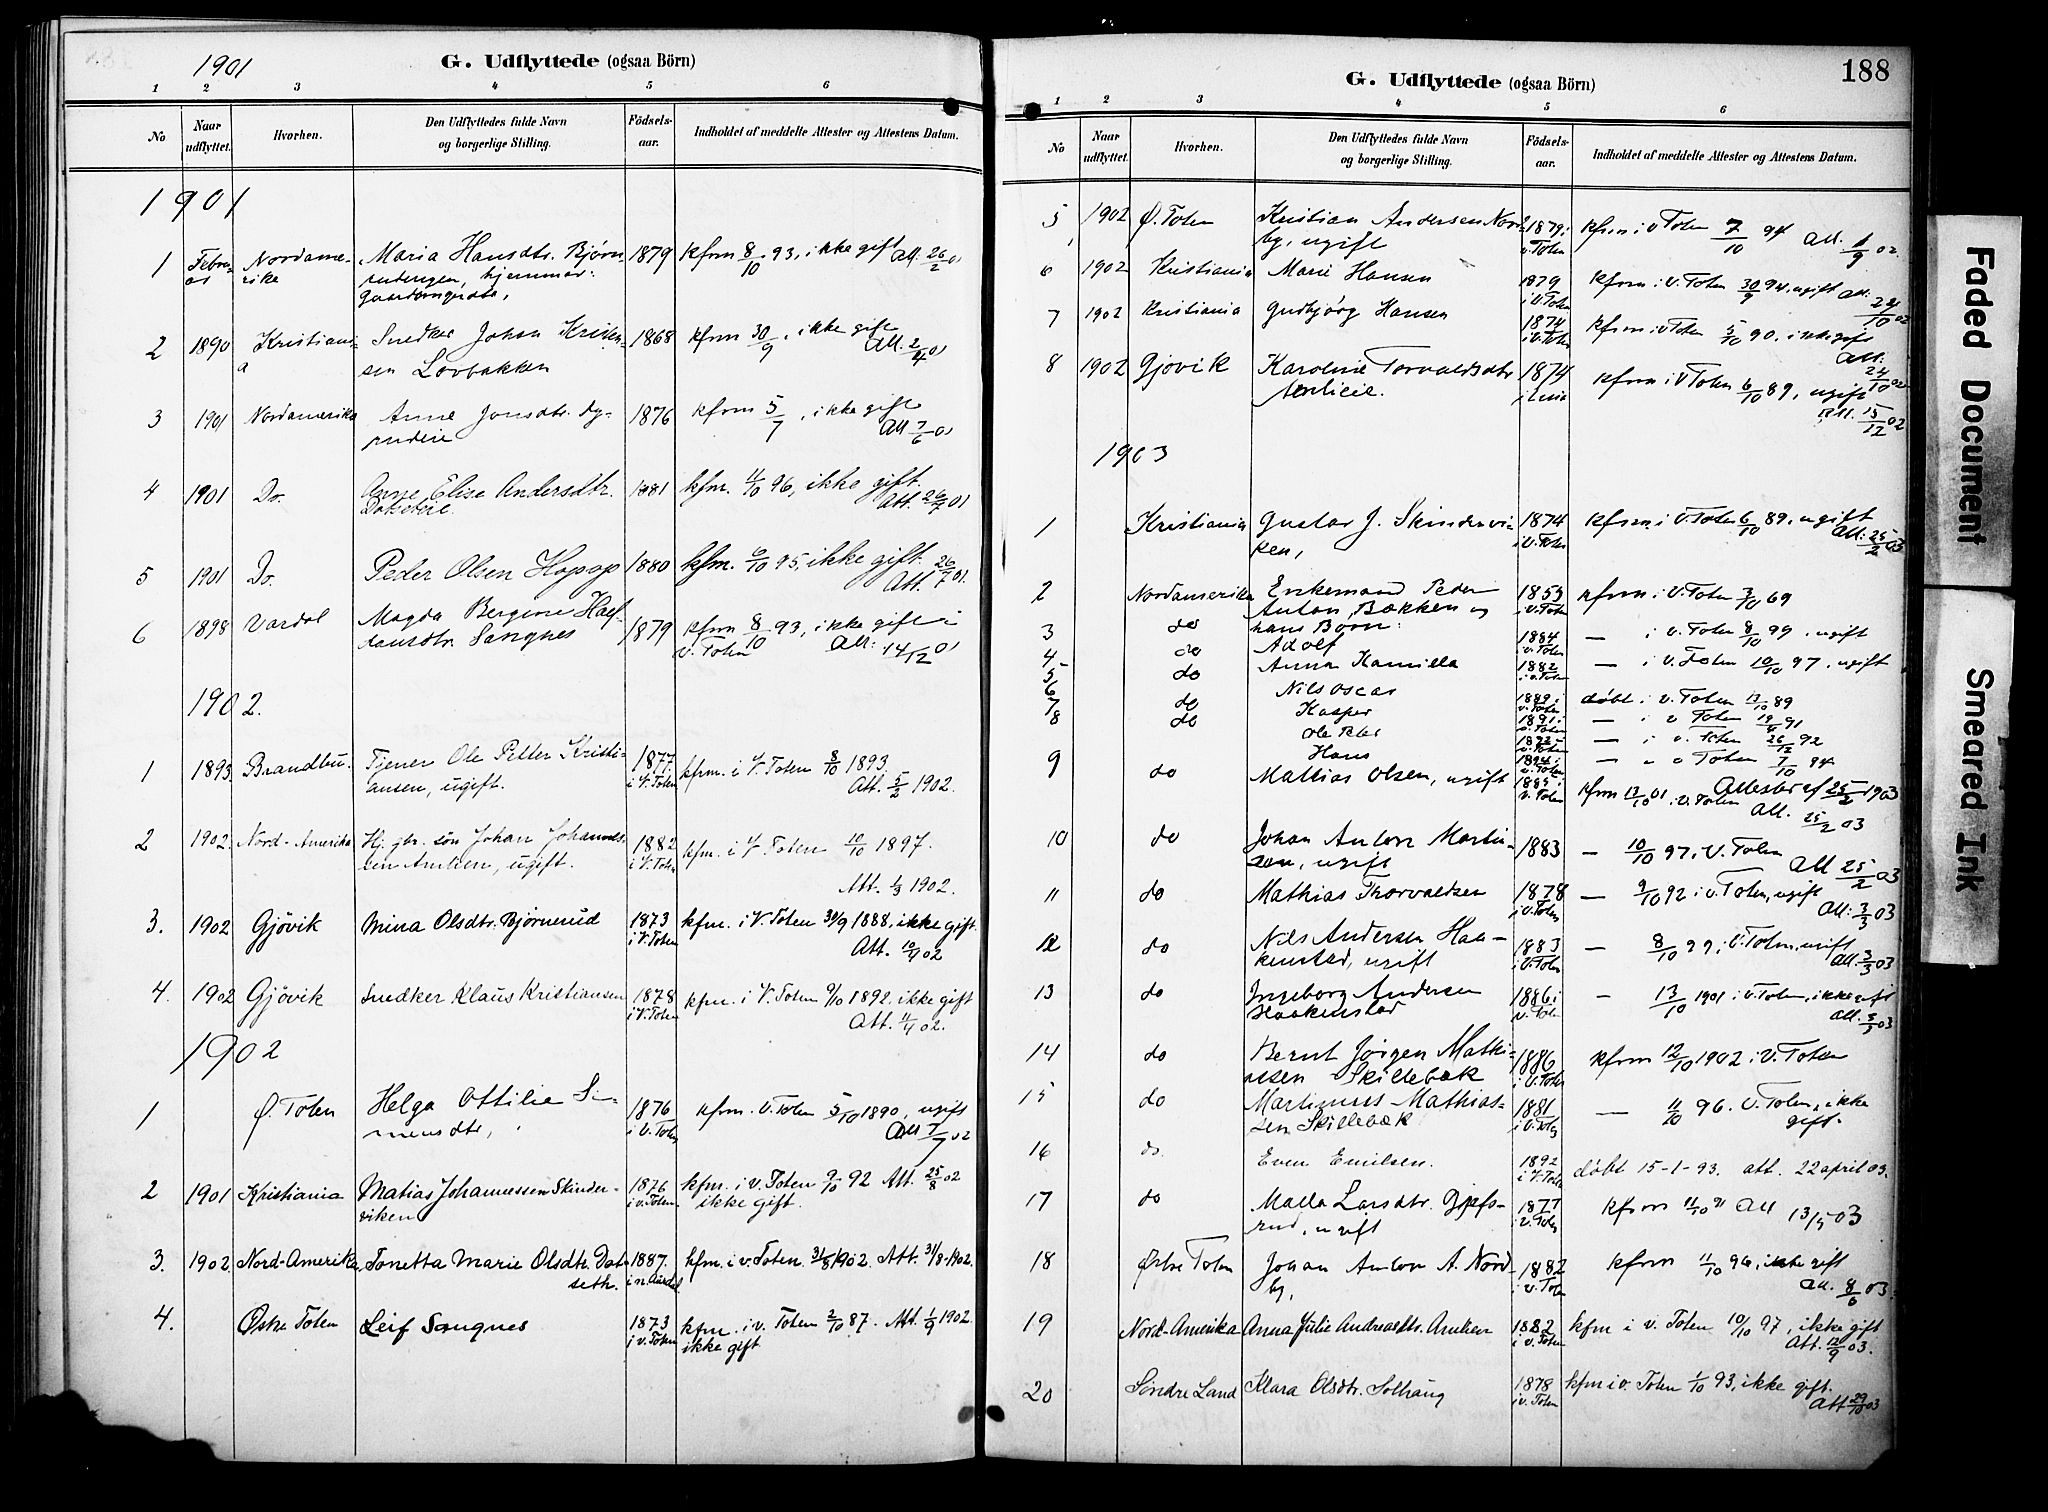 1901
G. Udflyttede (ogsaa Börn)
1 2 3 4 5 6
No
Naar udflyttet.
Hvorhen.
Den Udflyttedes fulde Navn og borgerlige Stilling.
Födsels-aar.
Indholdet af meddelte Attester og Attestens Datum.
1901
1 Febru- 01 Nordame-rike Maria Hansdtr. Bjørn- 1879 kfrm 8/10 93, ikke gift Att. 26/2 01
2 1890 Kristiani-a Snedker Johan Kristen- 1868 kfrm 30/9, ikke gift
sen Løvbakken Att. 2/4 01
3 1901 Nordamerika Anne Jonsdtr. 1876 kfrm 5/7, ikke gift
Att 7/6 01
4 1901 Do. Anne Elise Andersdtr. 1881 kfm. 11/10 96, ikke gift.
Att. 26/7 01
5 1901 Do. Peder Olsen 1880 kfm. 6/10 95, ikke gift.
Att. 26/7 01.
6 1898 Vardal Magda Bergine Half- 1879 kfrm 8/10 93, ikke gift i
dansdtr. Sangnes v. Toten Att: 14/12 01
1902.
1 1893. Brandbu. Tjener Ole Petter Kristi- 1877 kfm. i V. Toten 8/10 1893
ansen, ugift. i V. Toten Att. 5/2 1902.
2 1902. Nord-Amerika Hj. gbr. søn Johan Johannes- 1882 kfm. i V. Toten 10/10 1897.
sen Amlien, ugift. i V. Toten
Att. 1/3 1902.
3. 1902 Gjøvik Mina Olsdtr. Bjørnerud 1873 kfm. i V. Toten 30/9 1888, ikke gift.
i V. Toten Att. 10/4 02
4. 1902 Gjøvik Snedker Klaus Kristiansen 1878 kfm. i V. Toten 9/10 1892. ikke gift
i V. Toten Att. 11/4 02.
1902
1 Ø. Toten Helga Ottilie Si- 1876 kfrm. V. Toten 5/10 1890, ugift
mensdtr, i V. Toten Att 7/7 02
2 1901 Kristiania Matias Johannessen Skinder- 1876 kfm. i v. Toten 9/10 92 Att. 25/8 02
viken i v. Toten ikke gift.
3. 1902. Nord-Amerika. Tonetta Marie Olsdtr. Dat- 1887. kfm. i v. Toten 31/8 1902. Att. 31/8-1902.
seth.
4. Østre Toten Leif Sangnes 1873 kfm. i v. Toten 2/10 87. Att. 1/9 1902.
i v. Toten ikke gift
188
G. Udflyttede (ogsaa Börn)
1 2 3 4 5 6
No
Naar udflyttet.
Hvorhen.
Den Udflyttedes fulde Navn og borgerlige Stilling.
Födsels-aar.
Indholdet af meddelte Attester og Attestens Datum.
5 1902 Ø. Toten Kristian Andersen Nord- 1879 i kfrm i v Toten 7/10 94 Att. 1/9 02
by, ugift v. Toten
6 1902 Kristiania Marie Hansen 1879 kfrm i v. Toten 30/9 94, ugift Att. 24/10 02
i V. Toten
7 1902 Kristiania Gudbjørg Hansen 1874 kfrm i v Toten 5/10 90. ikke gift
i V. Toten Att. 24/10 02
8 1902 Gjøvik Karoline Torvaldsdtr 1874 kfrm i V Toten 6/10 89, ugift
Att. 15/12 02
1903
1 Kristiania Gustav J. Skindervi- 1874 kfrm i V. Toten 6/10 89, ugift
ken, i V. Toten Att: 25/2 03
2 Nordamerika Enkemand Peder 1853 kfrm i V. Toten 3/10 69
Anton Bækken og i V. Toten
3 do hans Børn:
4 do Adolf 1884 — i v. Toten 8/10 99. ugift
5 do Anna Kamilla 1882 — i v. Toten 10/10 97. ugift
6 do Nils Oscar 1889 i døbt i v. Toten 13/10 89
7 do Kasper 1891 i — i v Toten 19/4 91
8 Ole Peter 1892 — i v. Toten 26/12 92
Hans 1894 i — v Toten 7/10 94
9 do Mathias Olsen, ugift 1885 i Attester af 25/2 1903
v. Toten kfrm 13/10 01. i v. Toten Att. 25/2 03
10 do Johan Anton Martin- 1883 — 10/10 97, V. Toten
sen, ugift Att 25/2 03
11 do Mathias Thorvaldsen 1878 — 9/10 92 i v. Toten, ugift
i V. Toten Att: 3/3 03
12 do Nils Andersen Haa- 1883 — 8/10 99, i V. Toten, ugift
kenstad, ugift i V. Toten Att. 3/3 03
13 do Ingeborg Andersen 1886 i — 13/10 1901 i V. Toten, ikke gift
Haakenstad v. Toten Att. 3/3 03
14 do Bernt Jørgen Mathi- 1886 kfrm 12/10 1902 i V. Toten
assen Skillebæk i V. Toten
15 do Martinus Mathias- 1881 — 11/10 96. V. Toten, ikke
sen Skillebæk i V. Toten gift.
16 do. Even Emilsen. 1892 døbt 15-1-93. att. 22 april 03.
i V. Toten
17 do Larsdtr. 1877 kfrm 11/10 91 Att 13/5 03
rud, ugift i V. Toten
18 Østre Toten Johan Anton A. Nord- 1882 kfrm 11/10 96, ikke gift
by, i V. Toten Att. 8/6 03.
19 Nord-Amerika Anna Julie Andreasdtr. Amlien 1882 kfm i v. Toten 10/10 97, ikke gift
i v. Toten Att. 12/9 03.
20 Søndre Land Klara Olsdtr. Solhaug 1878 kfm i v. Toten 1/10 93, ikke gift.
i v. Toten Att 29/10 03
Faded Document
Smeared Ink